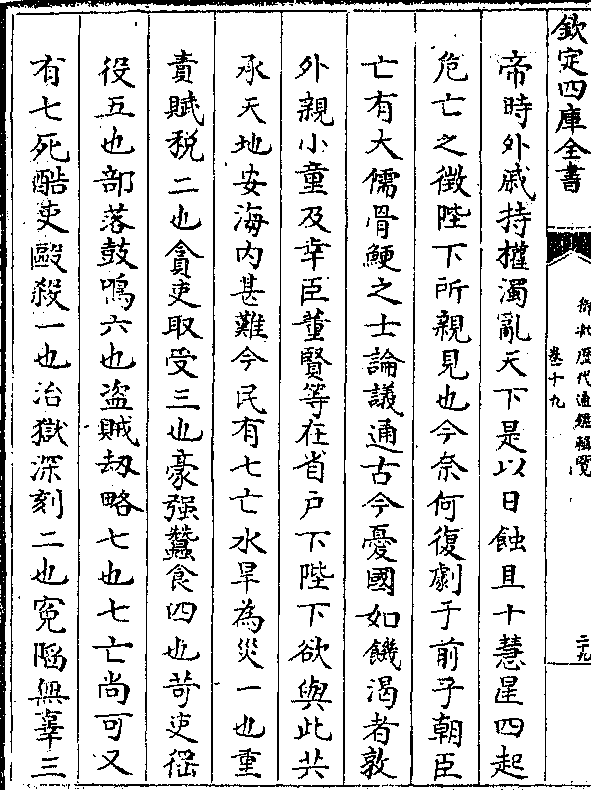 欽定四庫全書
御批歷代通鑑輯覽
卷十九
二十九
帝時外戚持權濁亂天下是以日蝕且十慧星四起
危亡之徵陛下所親見也今奈何復劇于前乎朝臣
亡有大儒骨鯁之士論議通古今憂國如饑渴者敦
外親小童及幸臣董賢等在省户下陛下欲與此共
承天地安海内甚難今民有七亡水旱為災一也重
責賦税二也貪吏取受三也豪强蠶食四也苛吏徭
役五也部落鼓鳴六也盗賊刧略七也七亡尚可又
有七死酷吏毆殺一也治獄深刻二也寃陷無辜三